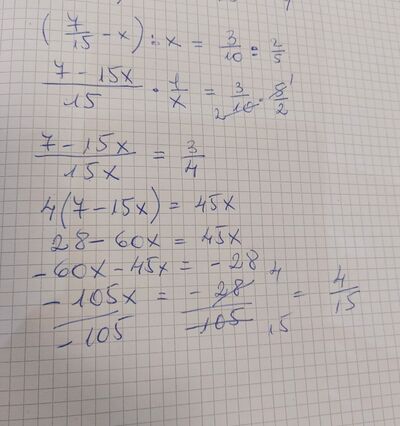 (7/15 - x) : x = 3/10 : 2/5
(7 - 15x)/15 · 1/x = 3/10 2 · 5/2 1
(7 - 15x)/15x = 3/4
4(7 - 15x) = 45x
28 - 60x = 45x
-60x - 45x = -28
-105x/-105 = -28/-105 4 15 = 4/15